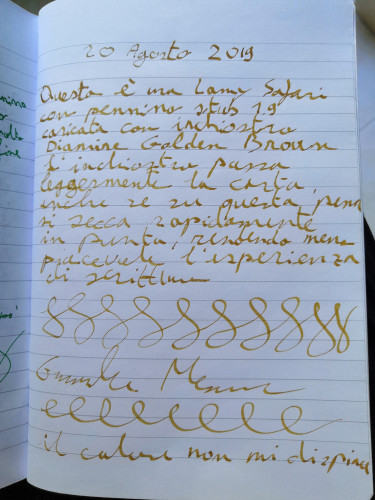 20 Agosto 2019
Questa è una Lamy Safari
con pennino stub 1.9
caricata con inchiostro
Diamine Golden Brown
L'inchiostro passa
leggermente la carta,
anche se su questa penna
si secca rapidamente
in punta, rendendo meno
piacevole l'esperienza
di scrittura
il colore non mi dispiace